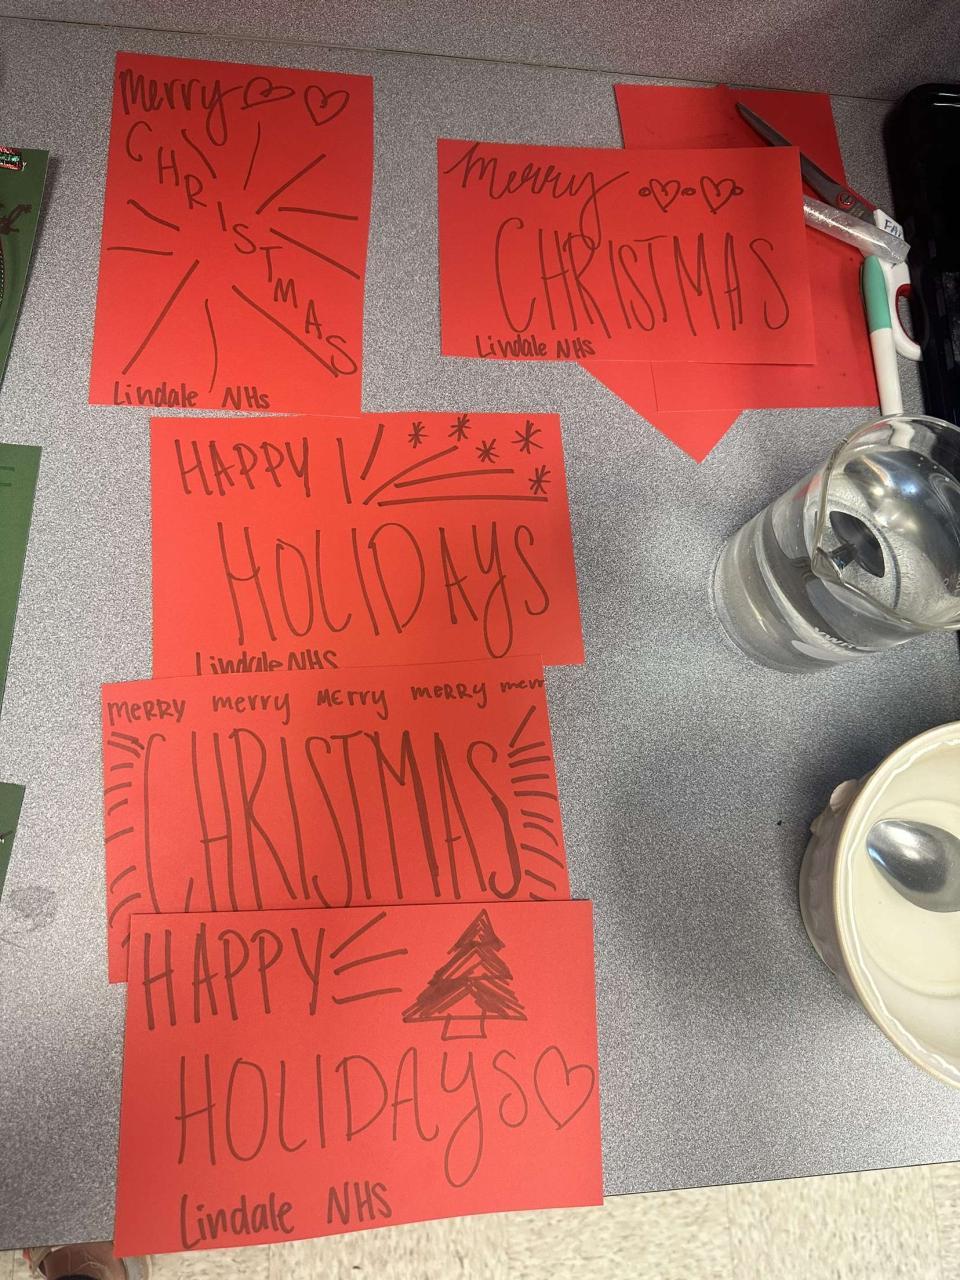 Merry
CHRISTMAS
Lindale NHS
Merry
CHRISTMAS
Lindale NHS
HAPPY
HOLIDAYS
Lindale NHS
MERRY merry Merry merry merr
CHRISTMAS
HAPPY
HOLIDAYS
Lindale NHS